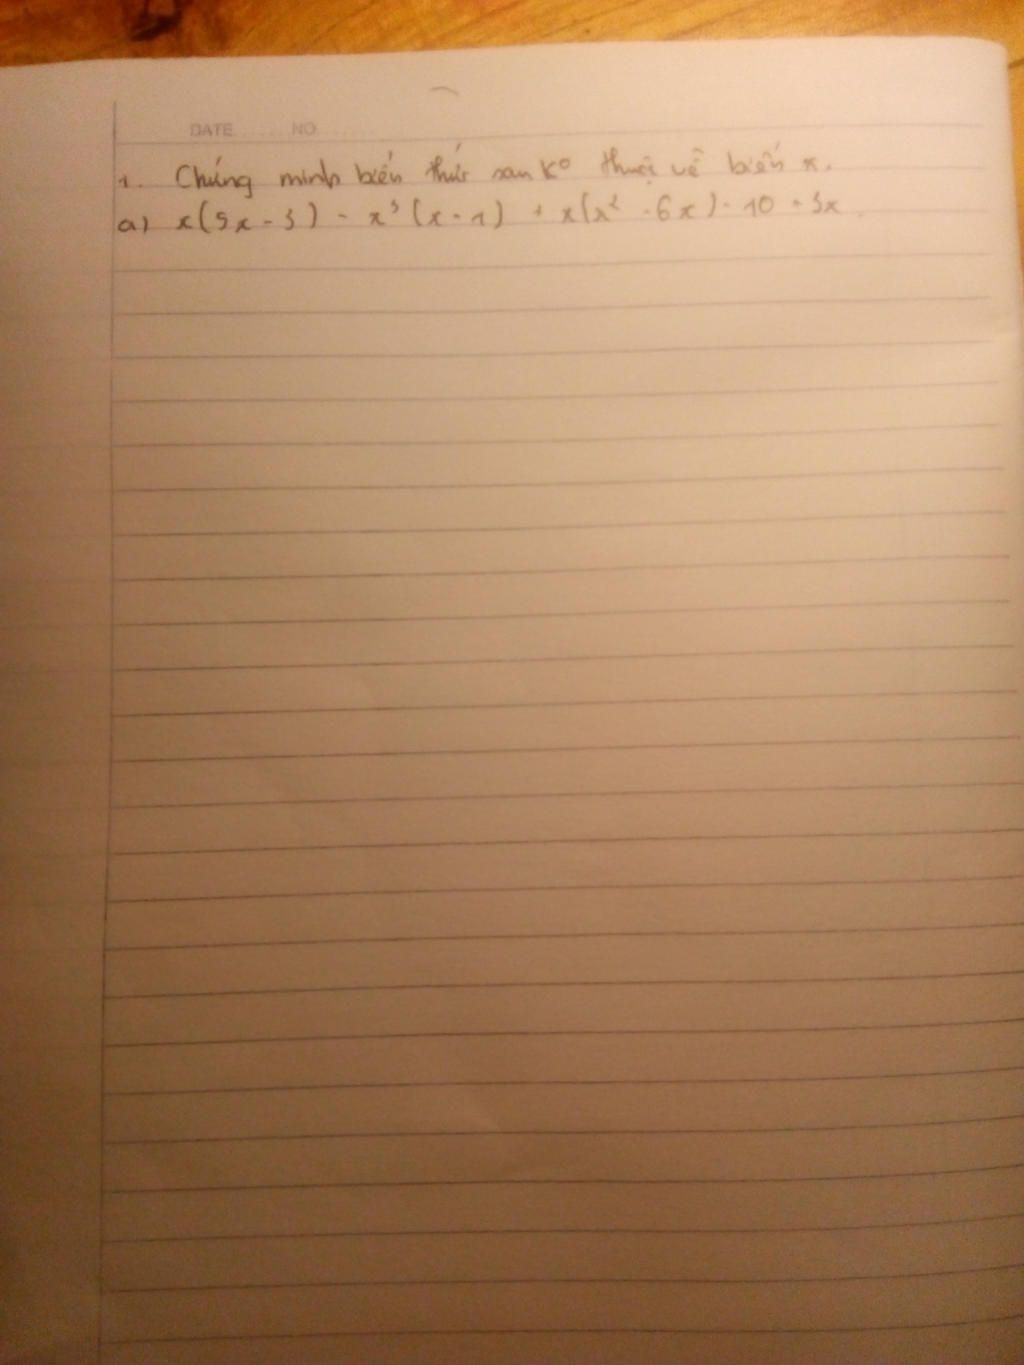 DATE NO
1. Chứng minh biến thức sau K⁰ thuộc về biến x.
a) x(5x - 3) - x³(x - 1) + x(x² - 6x) - 10 + 3x